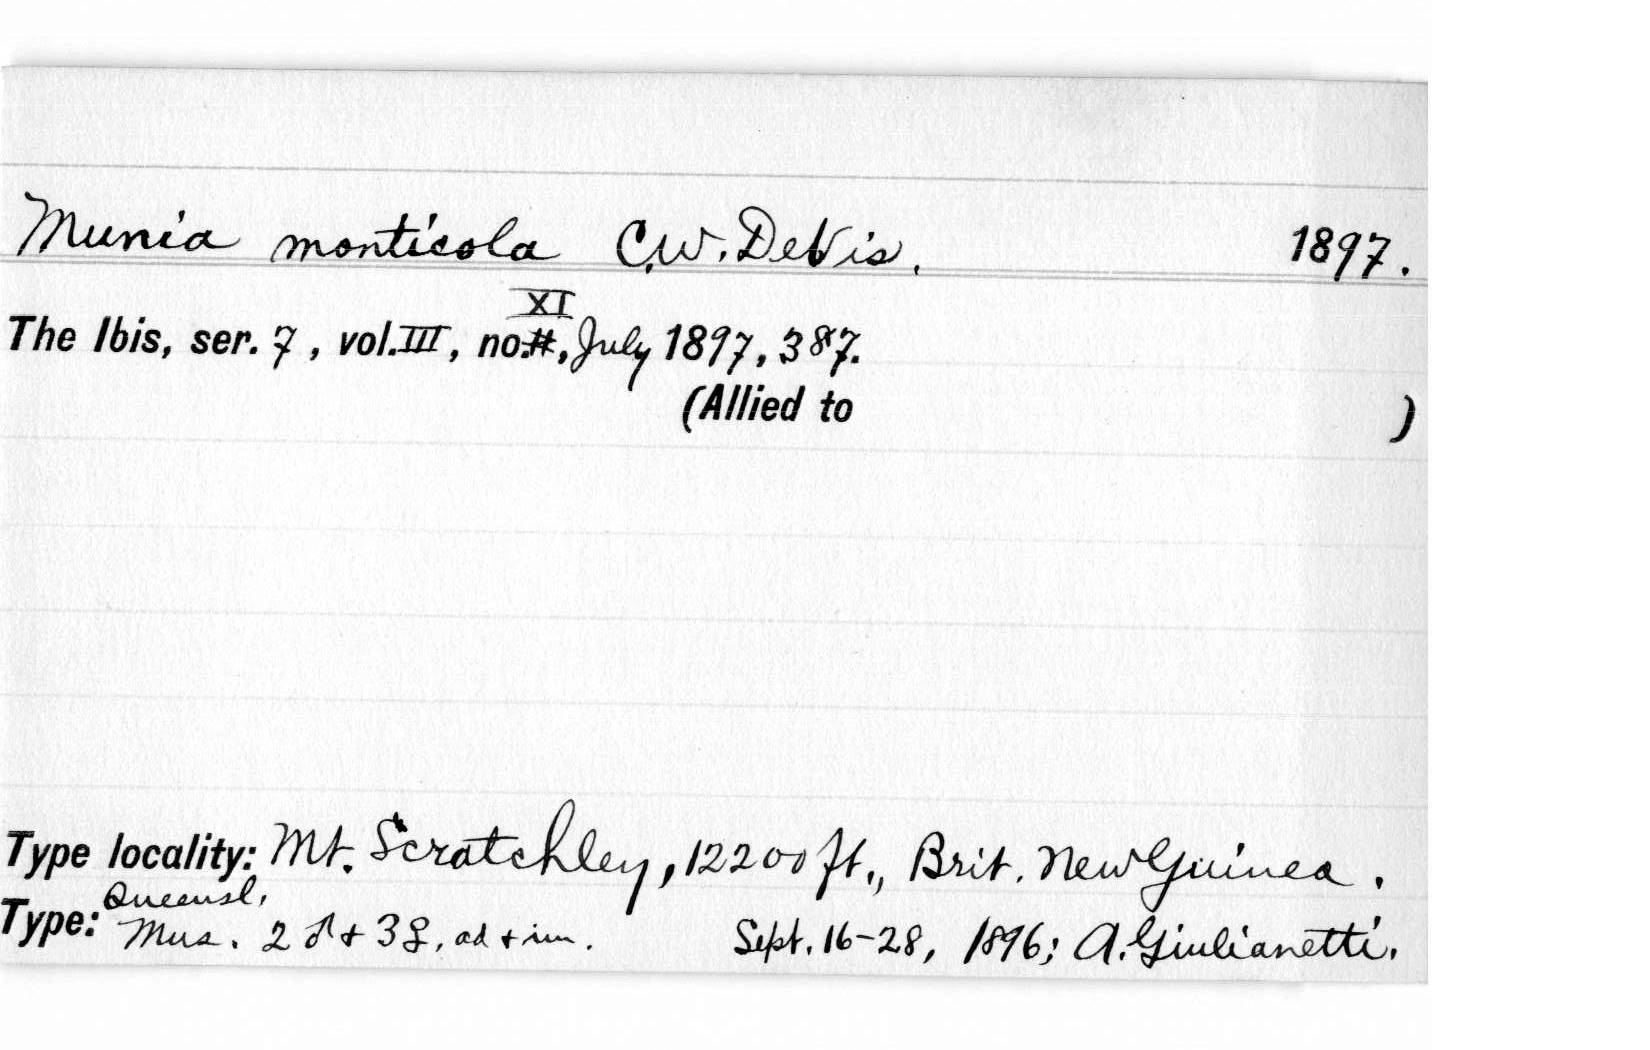 Munia monticola C.W. DeVis. 1897.
XI
The Ibis, ser. 7, vol. III, no. #, July 1897, 387.
(Allied to )
Type locality: Mt. Scratchley, 12200 ft., Brit. New Guinea.
Queensl.
Type: Mus. 2 ♂ + 3 ♀, ad + im. Sept. 16-28, 1896; A. Giulianetti.